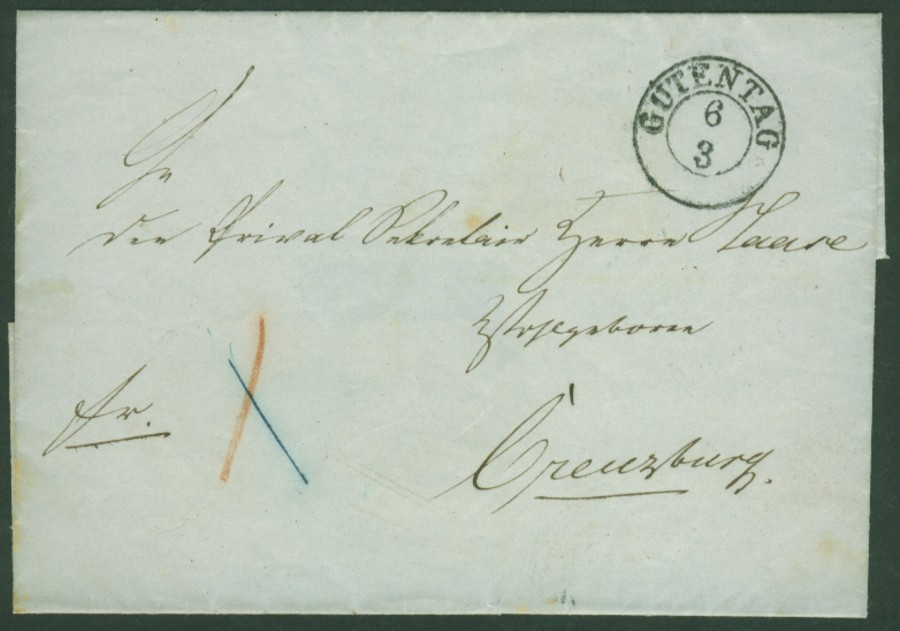 GUTENTAG
6
3
An
den Privat Sekretair Herrn Haase
Wohlgeboren
fr.
Creuzburg.